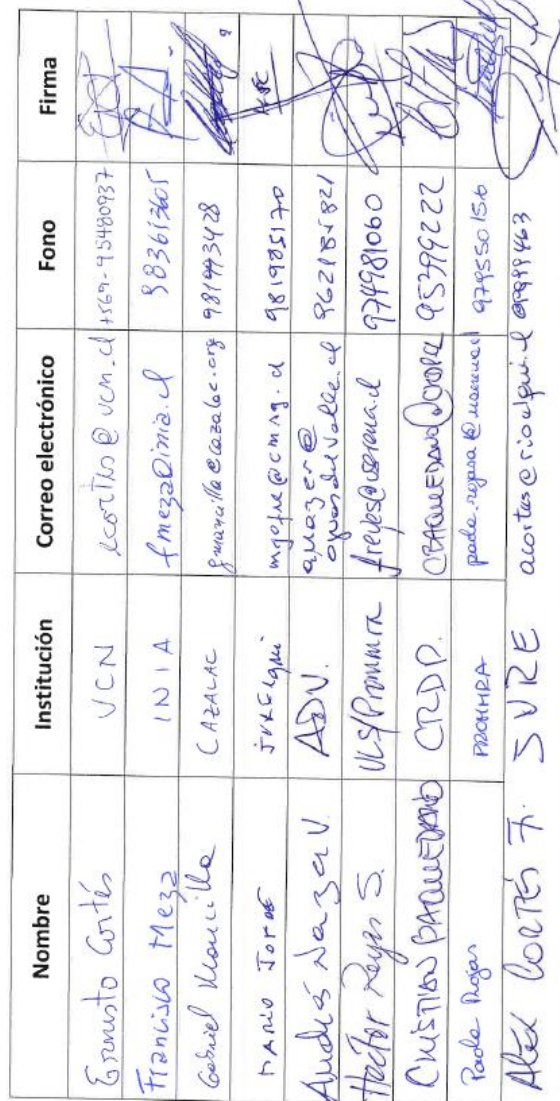 Nombre Institución Correo electrónico Fono Firma
Ernesto Cortés UCN ecortes@ucn.cl +569-95480937
Francisco Meza INIA fmeza@inia.cl 983613605
Gabriel Mancilla CAZALAC gmancilla@cazalac.org 981443428
MARIO JOFRE JVRElqui 981985170
Andrés Nazer V. ADV. anazer@
aguasdelvalle.cl 962185821
Hector Reyes S. ULS/Prommra freyes@userena.cl 974981060
CRISTIAN BAQUEDANO CRDP. 95399222
Paola Rojas PROMMRA 979550156
Alex CORTÉS F. JVRE acortes@rioelqui.cl